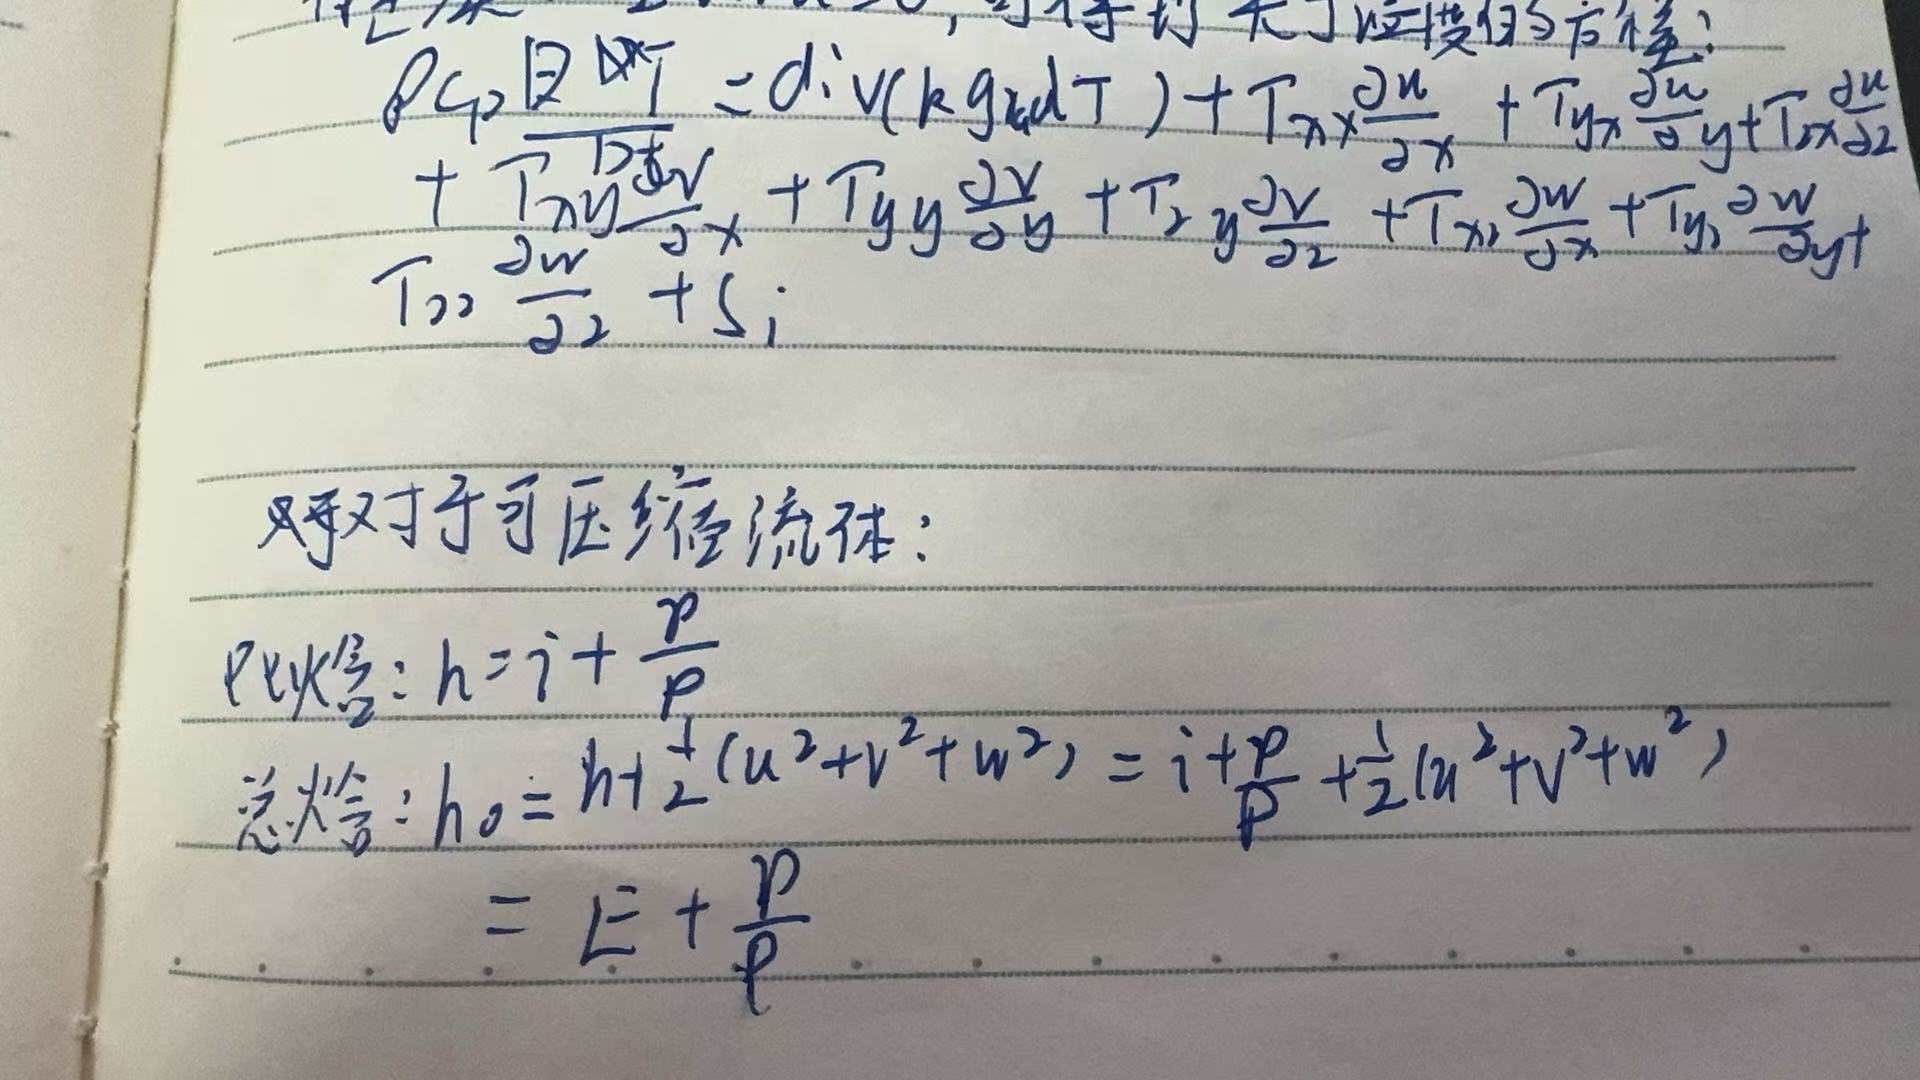 可得到关于温度的方程：
ρCp DT/Dt = div(k grad T) + τxx ∂u/∂x + τyx ∂u/∂y + τzx ∂u/∂z
+ τxy ∂v/∂x + τyy ∂v/∂y + τzy ∂v/∂z + τxz ∂w/∂x + τyz ∂w/∂y +
τzz ∂w/∂z + Si
对于可压缩流体：
比焓：h = i + p/ρ
总焓：h₀ = h + 1/2 (u²+v²+w²) = i + p/ρ + 1/2 (u²+v²+w²)
= E + p/ρ